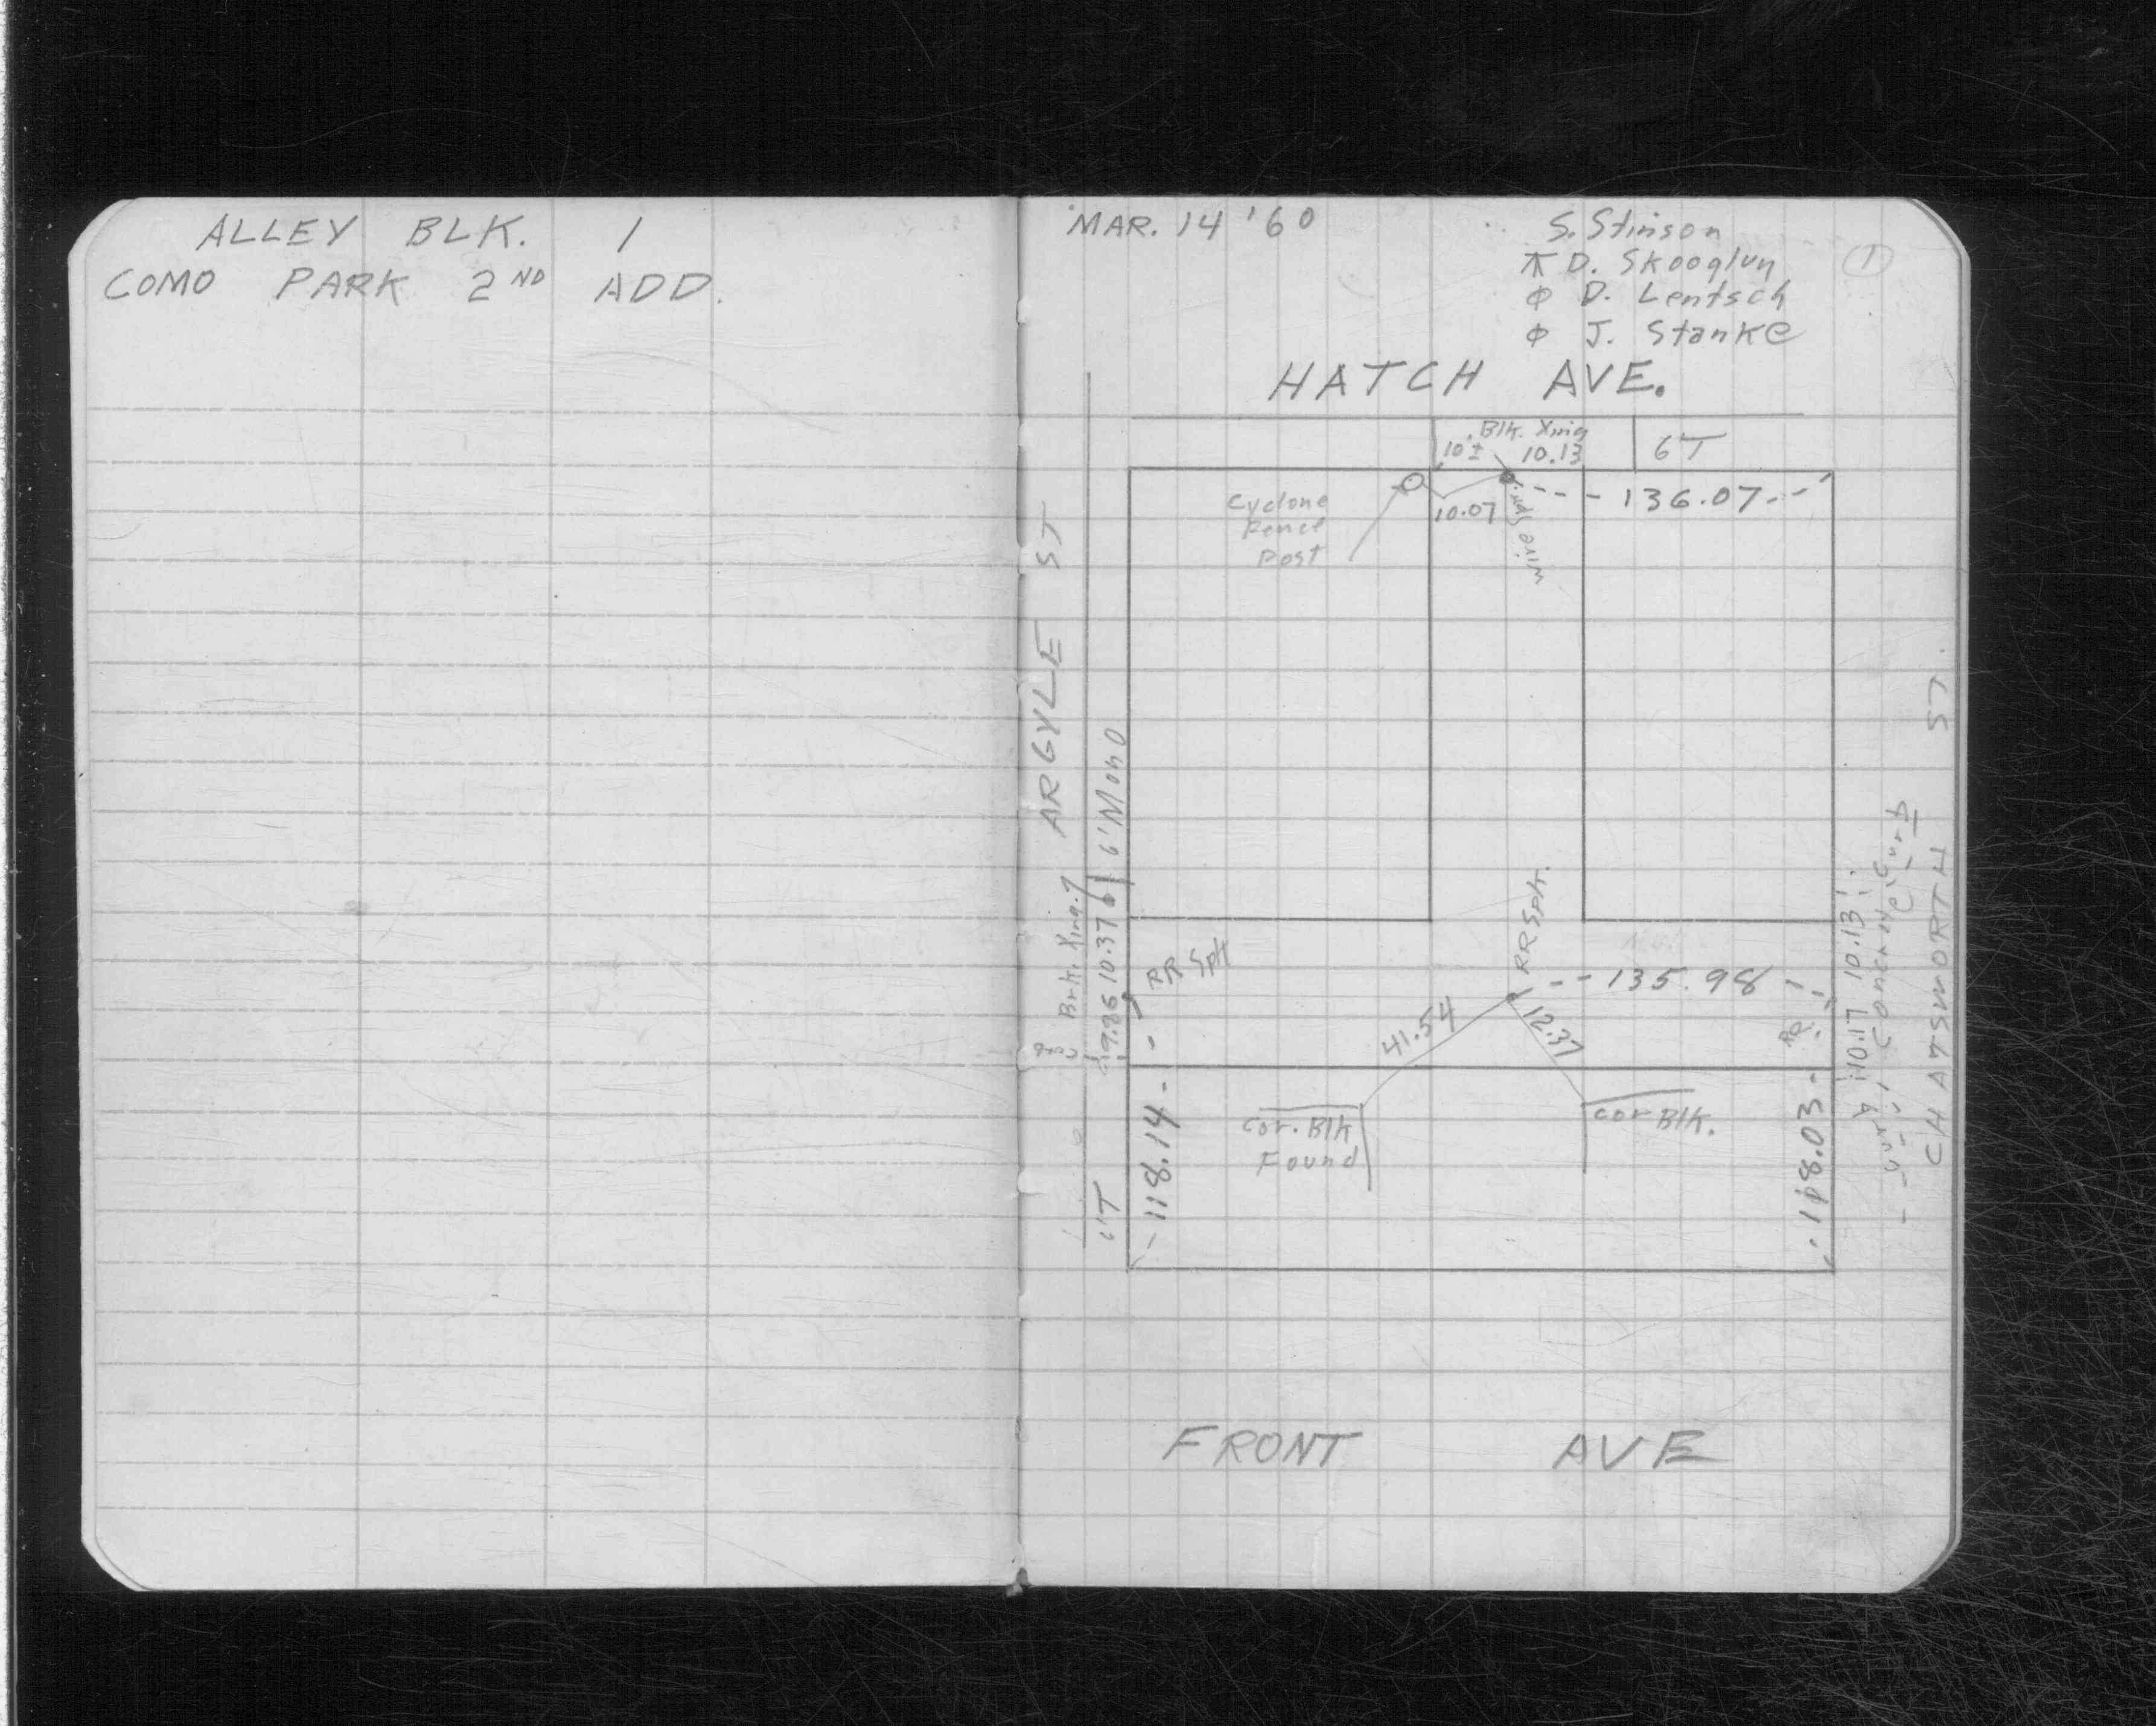 ALLEY BLK. 1
COMO PARK 2ND ADD.
MAR. 14 '60
S. Stinson
⊼ D. Skooglun
φ D. Lentsch
φ J. Stanke
1
HATCH AVE.
Blk. Xing
10'± 10.13
6T
136.07
10.07
Cyclone
Fence
Post
Wire Spk.
ARGYLE ST
6' Mono
Brk. Xing.
9.86 10.37
RR Spk
RR Spk.
135.98
41.54
12.37
RR
Cor. Blk
Found
cor Blk.
118.14
118.03
6'T
10.17 10.13
Concrete Curb
CHATSWORTH ST.
FRONT AVE